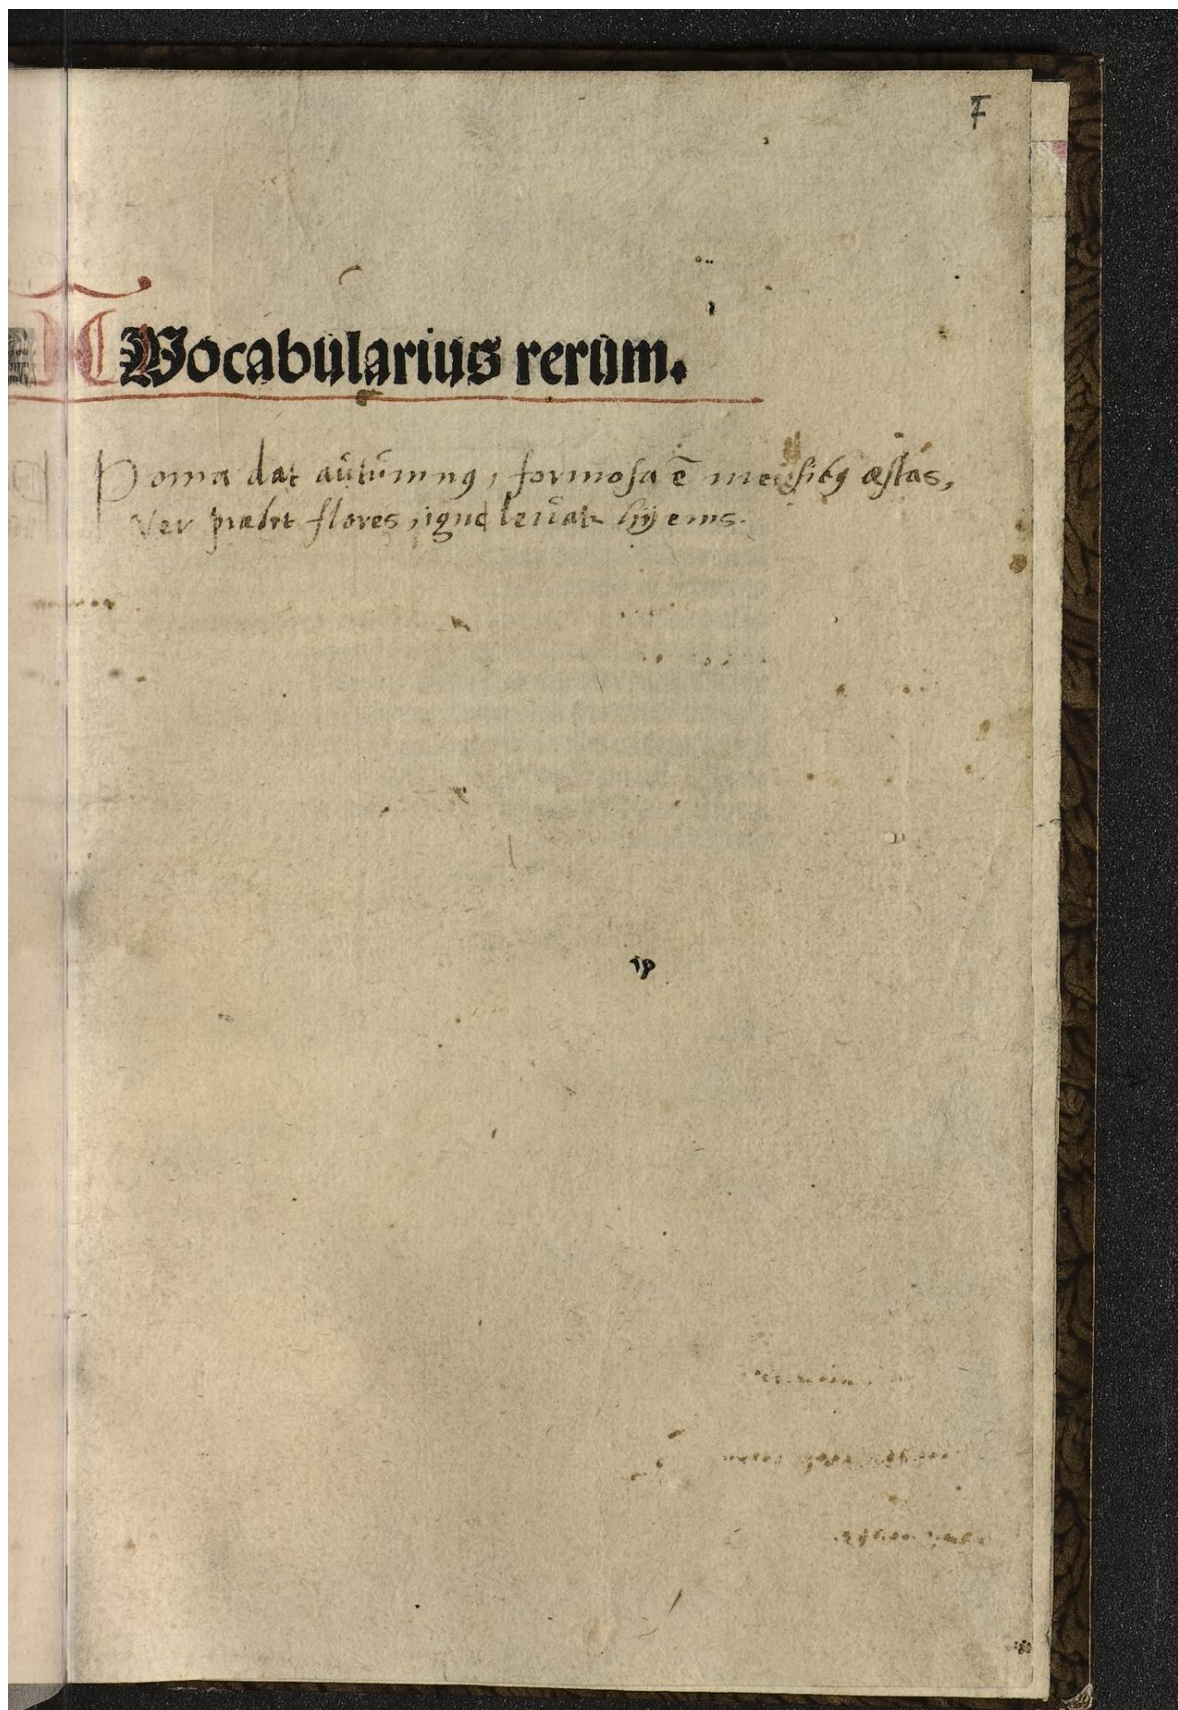 7
Vocabularius rerum.
Poma dat aŭtŭmnꝰ, formosa ē messibꝰ æstas,
Ver præbet flores, igne leŭatᷣ hyems.